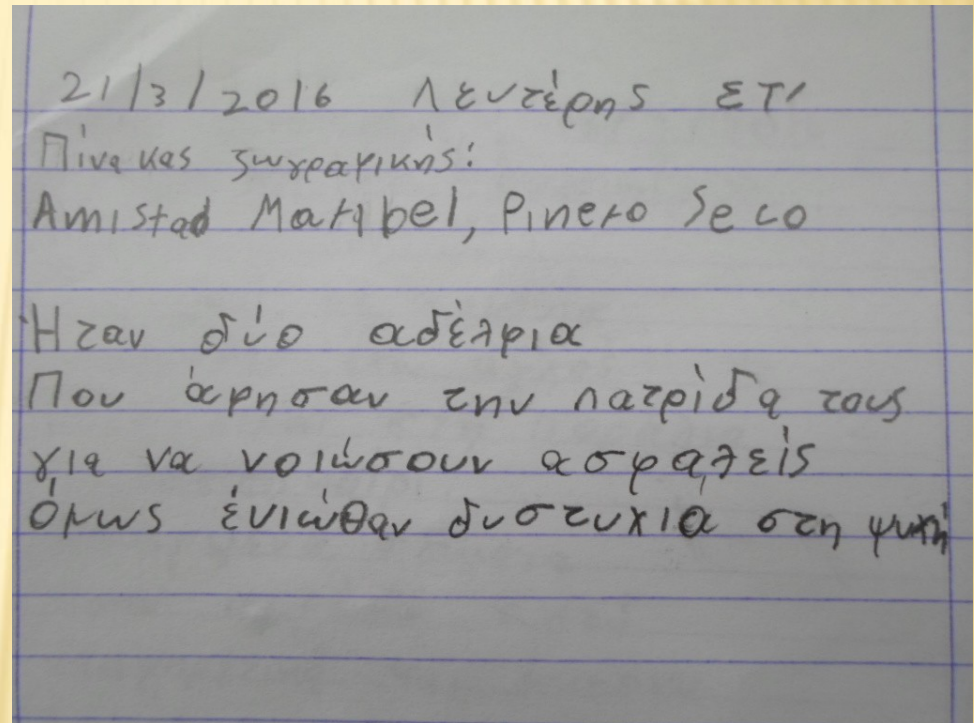 21/3/2016 Λευτέρης ΣΤ'
Πίνακας ζωγραφικής:
Amistad Maribel, Pinero Seco
Ήταν δύο αδέλφια
Που άφησαν την πατρίδα τους
για να νοιώσουν ασφαλείς
όμως ένιώθαν δυστυχία στη ψυχή